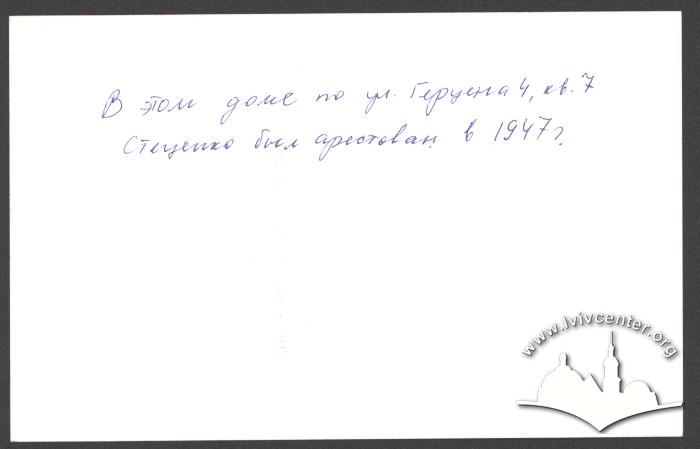 В этом доме по ул. Герцена 4, кв. 7
Стеценко был арестован в 1947 г.
www.lvivcenter.org